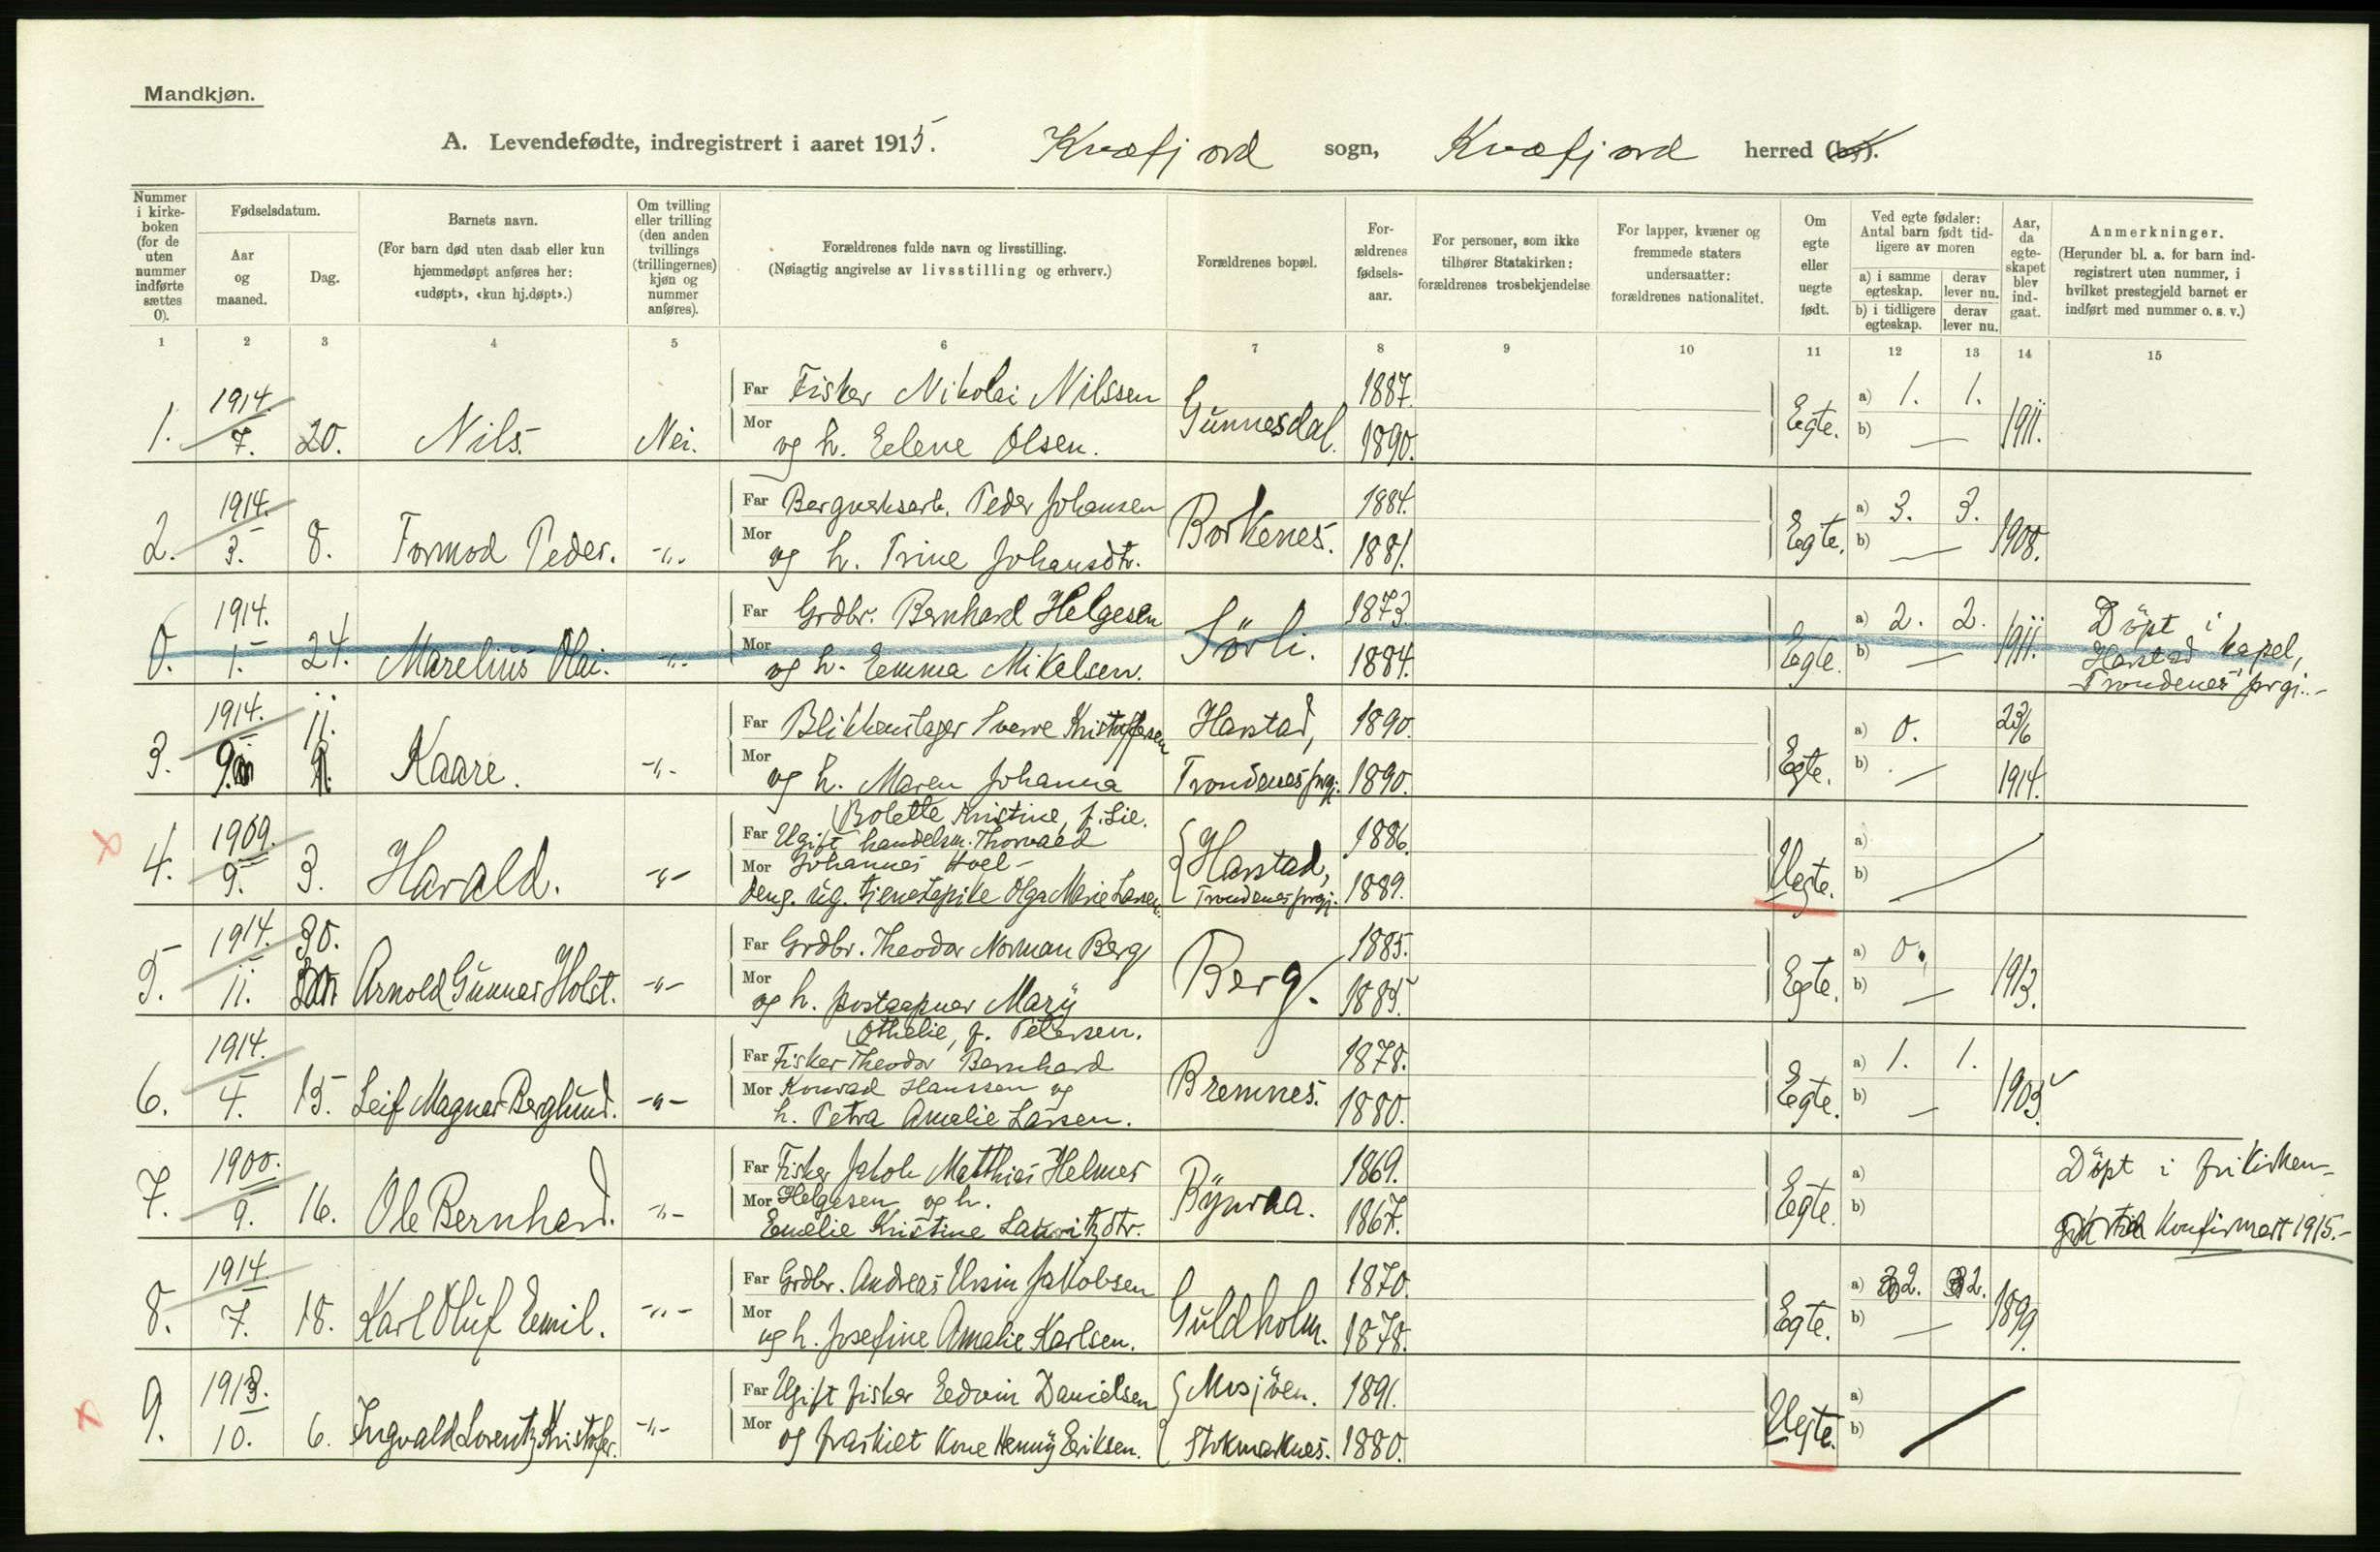 Mandkjøn.
A. Levendefødte, indregistrert i aaret 1915. Kvæfjord sogn, Kvæfjord herred (by).
Nummer i kirke-boken (for de uten nummer indførte sættes 0).
Fødselsdatum.
Aar og maaned.
Dag.
Barnets navn.
(For barn død uten daab eller kun hjemmedøpt anføres her: «udøpt», «kun hj.døpt».)
Om tvilling eller trilling (den anden tvillings (trillingernes) kjøn og nummer anføres).
Forældrenes fulde navn og livsstilling.
(Nøiagtig angivelse av livsstilling og erhverv.)
Forældrenes bopæl.
For-ældrenes fødsels-aar.
For personer, som ikke tilhører Statskirken: forældrenes trosbekjendelse.
For lapper, kvæner og fremmede staters undersaatter: forældrenes nationalitet.
Om egte eller uegte født.
Ved egte fødsler: Antal barn født tid-ligere av moren
a) i samme egteskap.
derav lever nu.
b) i tidligere egteskap.
derav lever nu.
Aar, da egte-skapet blev ind-gaat.
Anmerkninger.
(Herunder bl. a. for barn ind-registrert uten nummer, i hvilket prestegjeld barnet er indført med nummer o. s. v.)
1 2 3 4 5 6 7 8 9 10 11 12 13 14 15
1. 1914. 7. 20. Nils. Nei. Far Fisker Nikolai Nilssen Gunnesdal. 1887. Egte. a) 1. 1. 1911.
Mor og h. Eelene Olsen. 1890. b) —
2. 1914. 3. 8. Tormod Peder. -"- Far Bergverksarb. Peder Johansen Borkenes. 1884. Egte. a) 3. 3. 1908.
Mor og h. Trine Johansdtr. 1881. b) —
0. 1914. 1. 24. Marelius Olai. -"- Far Grdbr. Bernhard Helgesen Sörli. 1873. Egte. a) 2. 2. 1911. Döpt i
Mor og h. Emma Mikelsen. 1884. b) — Harstad kapel,
Trondenes prgj.-
3. 1914. 9. 11. Kaare. -"- Far Blikkenslager Sverre Kristoffersen Harstad, 1890. Egte. a) 0. 23/6
Mor og h. Maren Johanna Trondenes prgj. 1890. b) — 1914.
Bolette Kristine, f. Lie.
4. 1909. 9. 3. Harald. -"- Far Ugift handelsm. Thorvald Harstad, 1886. Uegte. a)
Mor Johannes Hoel -
deng. ug. tjenestepike Olga Marie Larsen. Trondenes prgj. 1889. b)
5. 1914. 11. 30. Arnold Gunnar Holst. -"- Far Grdbr. Theodor Norman Berg Berg. 1885. Egte. a) 0. 1913.
Mor og h. postaapner Mary 1885. b) —
Othelie, f. Petersen.
6. 1914. 4. 15. Leif Magnar Berglund. -"- Far Fisker Theodor Bernhard Bremnes. 1878. Egte. a) 1. 1. 1905.
Mor Konrad Hanssen og
h. Petra Amalie Larsen. 1880. b) —
7. 1900. 9. 16. Ole Bernhard. -"- Far Fisker Jakob Matthias Helmer 1869. Egte. a) Döpt i frikirken-
Mor Helgesen og h.
Emelie Kristine Lauritzdtr. 1867. b) Konfirmert 1915.-
8. 1914. 7. 18. Karl Oluf Eemil. -"- Far Grdbr. Andreas Ursin Jakobsen Guldholm. 1870. Egte. a) 2. 2. 1899.
Mor og h. Josefine Amalie Karlsen. 1878. b) —
9. 1913. 10. 6. Ingvald Lorentz Kristofer. -"- Far Ugift fisker Eedvin Danielsen Mosjöen. 1891. Uegte. a)
Mor og fraskilt kone Henny Eriksen. Stokmarknes. 1880. b)